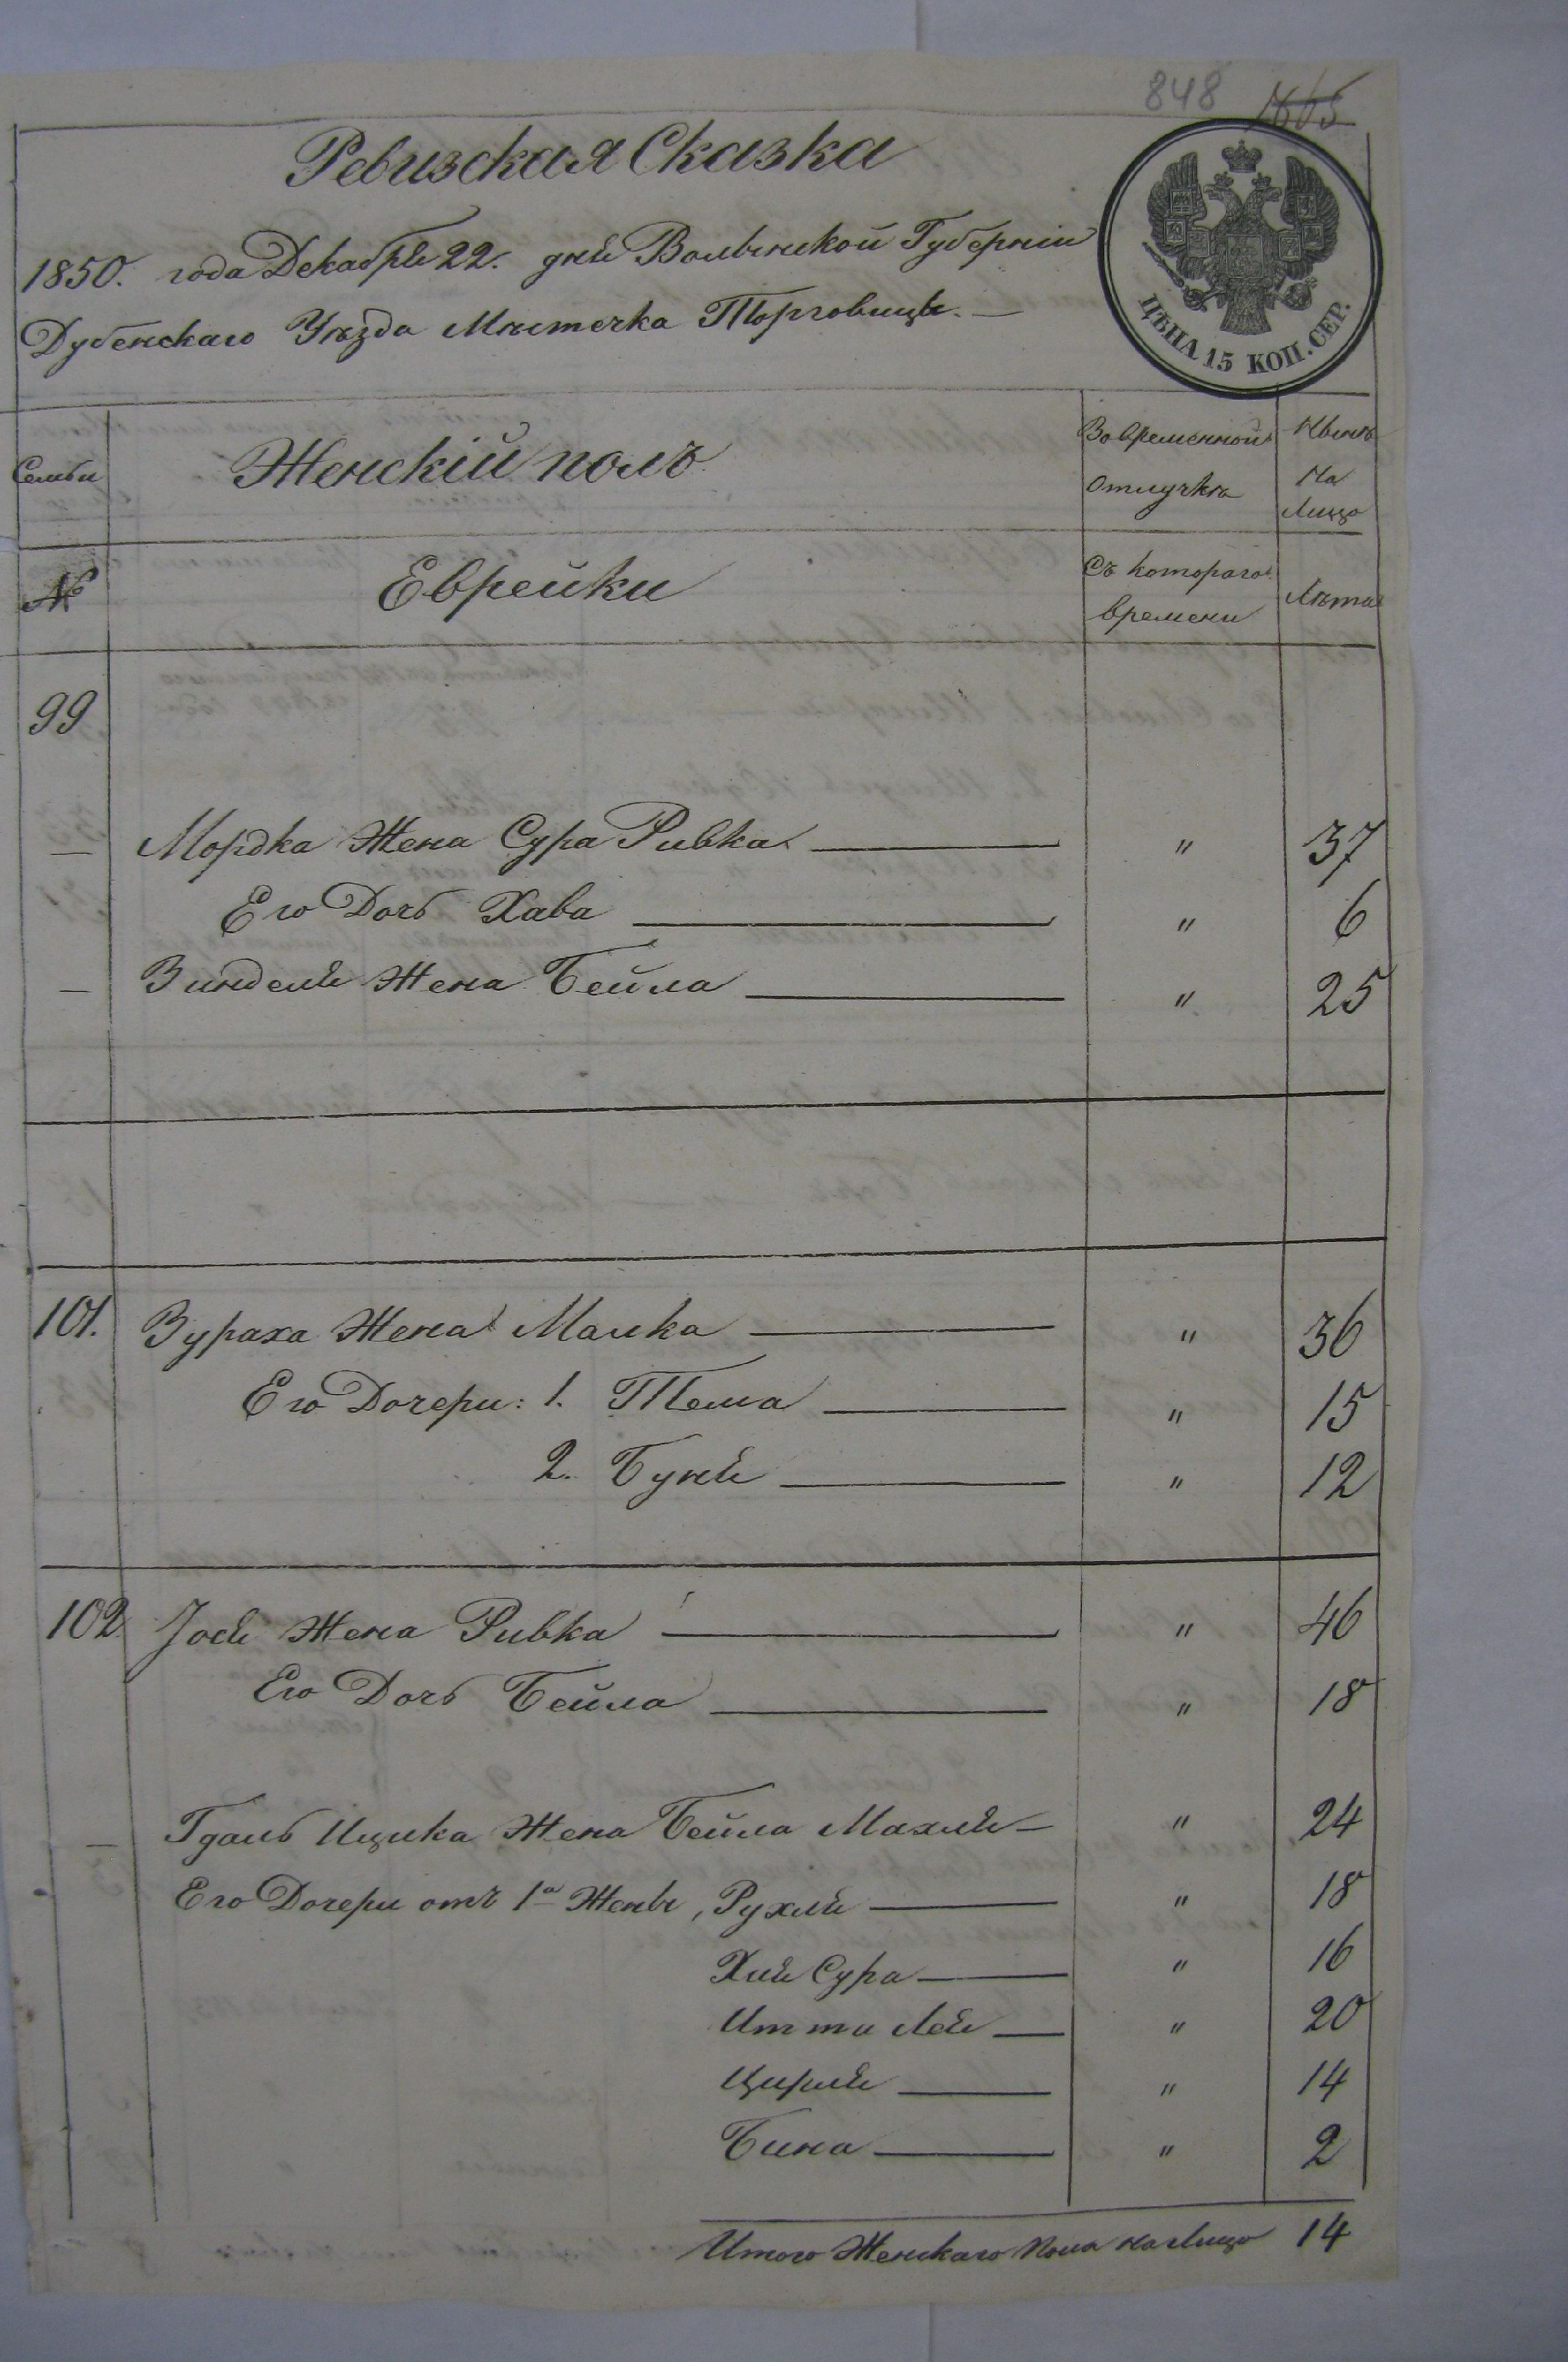 848 1665
Ревизская Сказка
1850. года Декабря 22. дня Волынской Губернии
Дубенскаго Уѣзда Мѣстечка Торговицы.
ЦѢНА 15 КОП. СЕР.
Семьи
Женскій полъ
Во временной отлучкѣ
Нынѣ на Лицо
№
Еврейки
Съ котораго времени
Лѣта
99
— Мордка Жена Сура Ривка — " 37
Его Дочь Хава — " 6
— Зинделя Жена Бейла — " 25
101. Зураха Жена Малка — " 36
Его Дочери: 1. Тема — " 15
2. Буня — " 12
102 Іося Жена Ривка — " 46
Его Дочь Бейла — " 18
— Гдаль Ицика Жена Бейла Махля — " 24
Его Дочери отъ 1й Жены, Рухля — " 18
Хия Сура — " 16
Итта Лея — " 20
Цирля — " 14
Бина — " 2
Итого Женскаго пола на Лицо 14